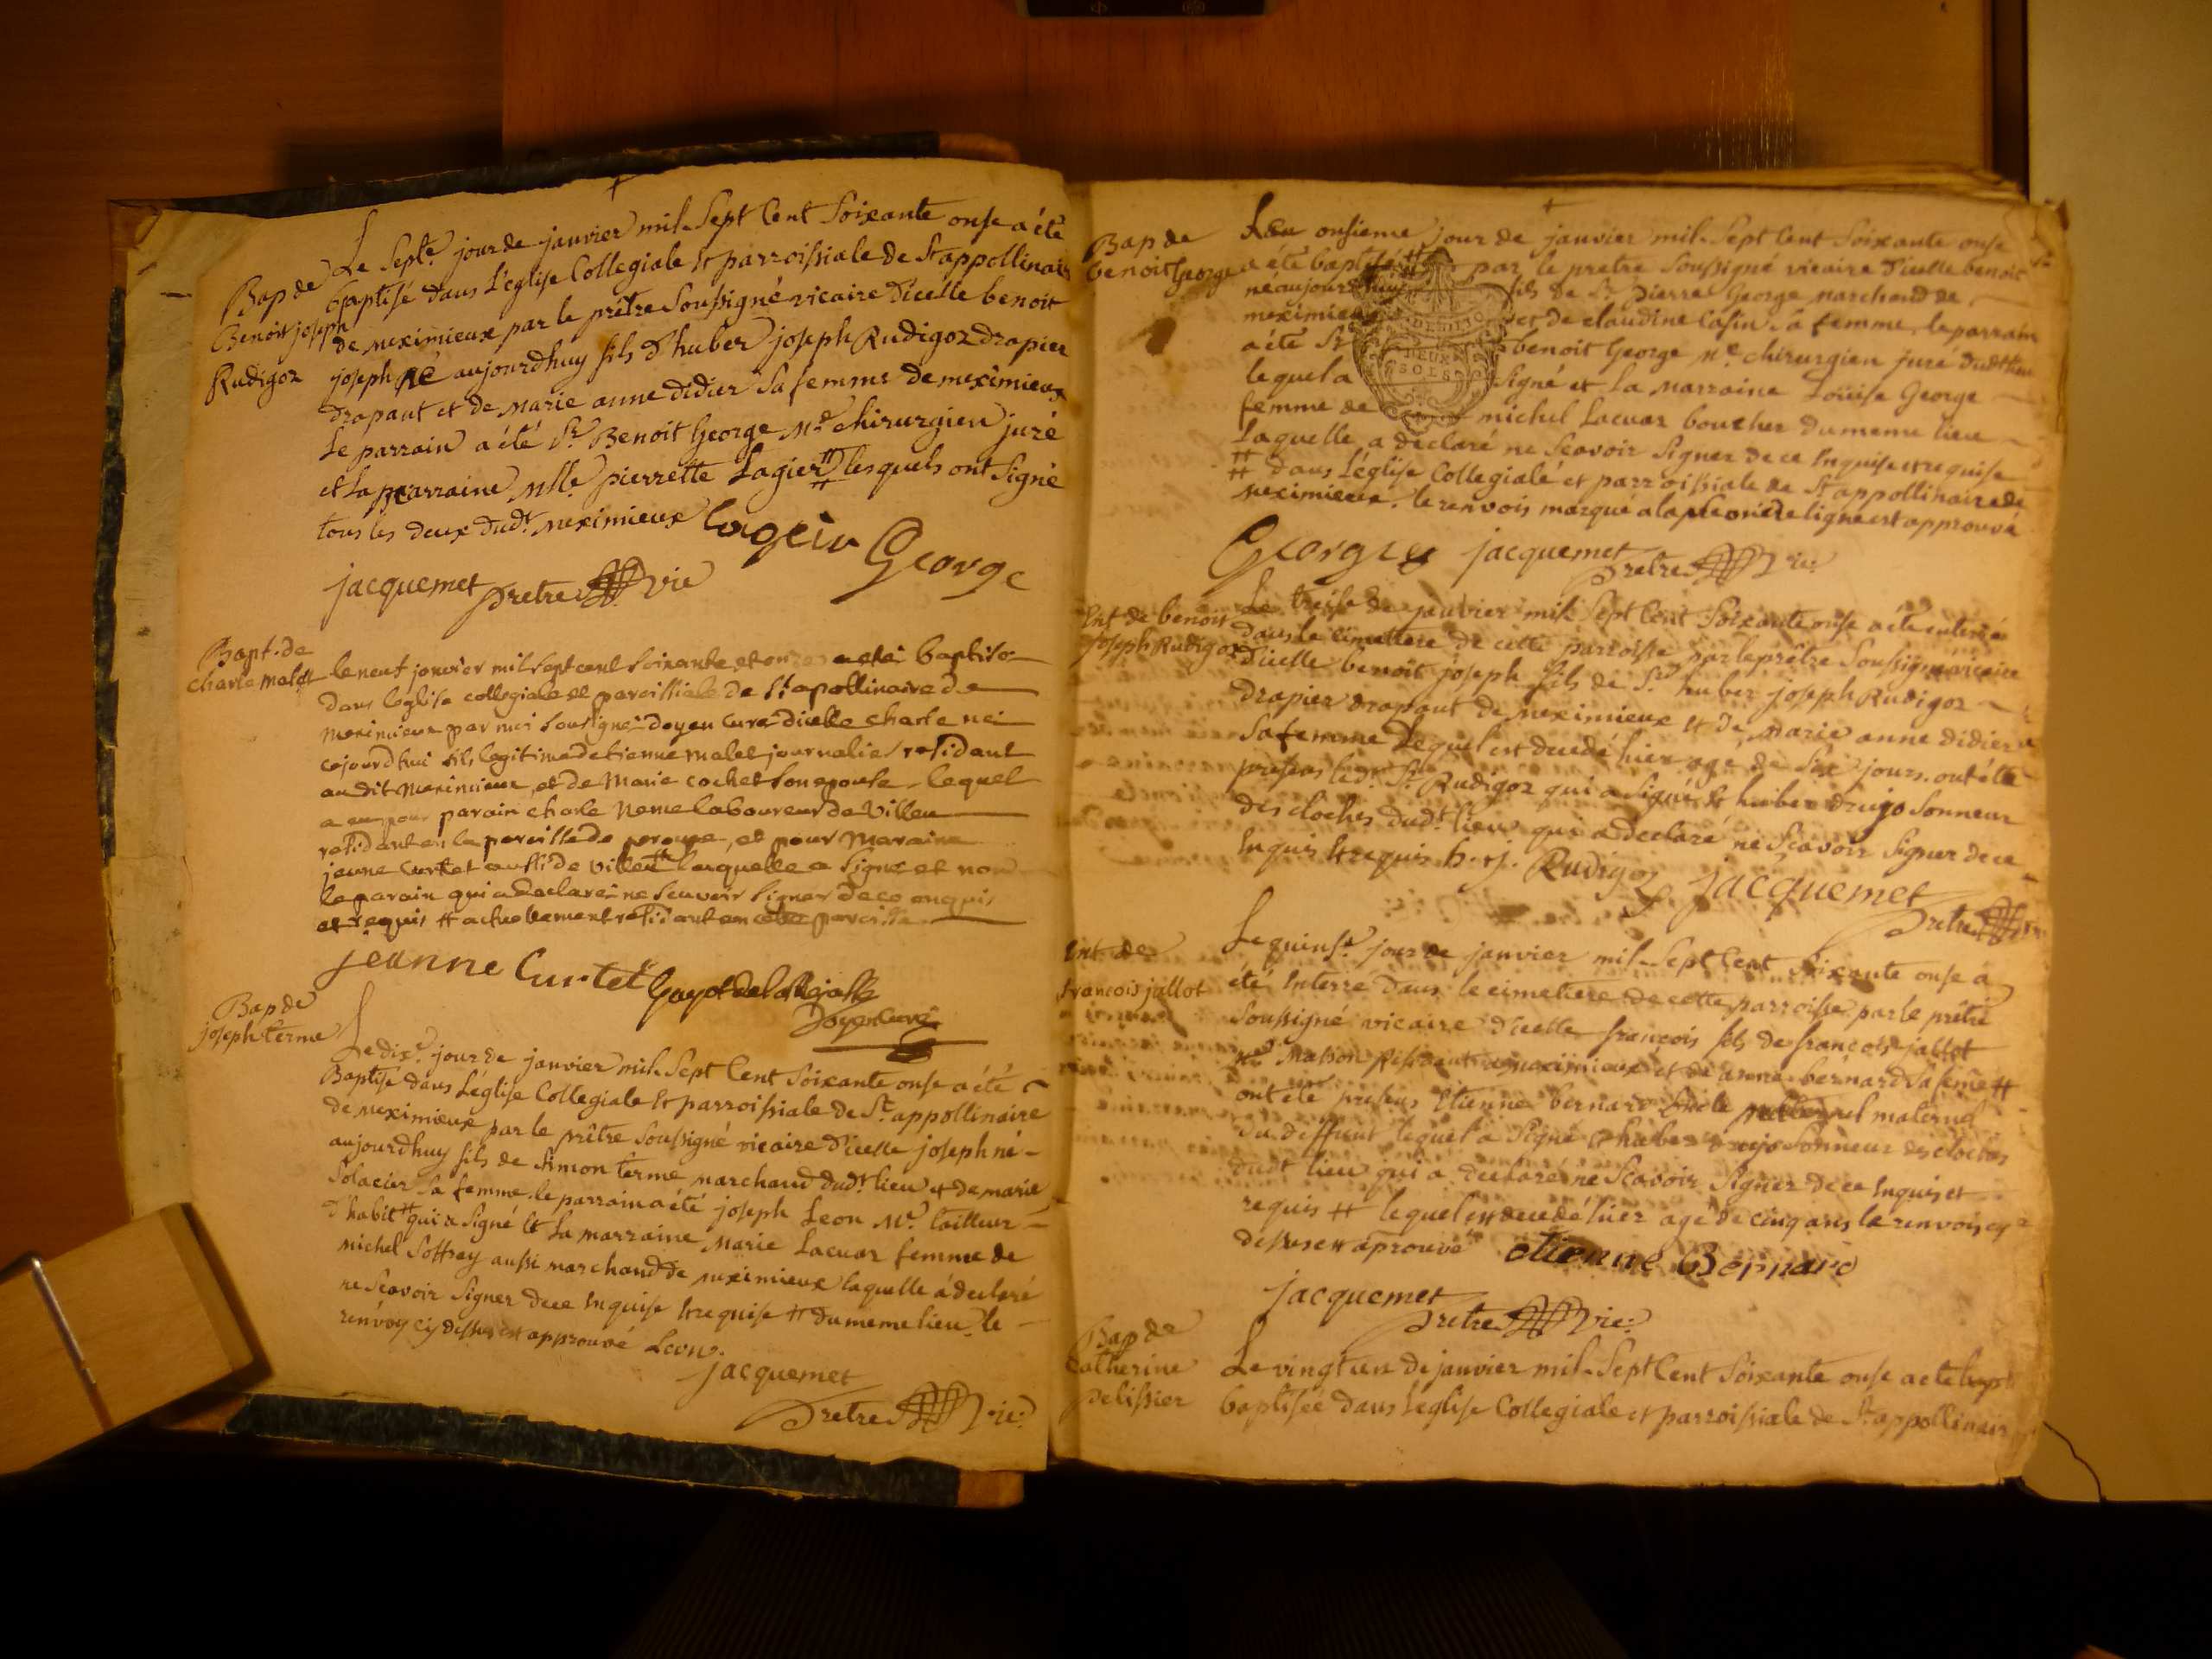 Bap de
Benoit joseph
Rudigoz
Le Septe. jour de janvier mil Sept Cent Soixante onse a été
baptisé dans L'église Collegiale et parroissiale de St appollinaire
de meximieux par le prêtre Soussigné vicaire d'icelle benoit
joseph né aujourdhuy fils d'huber joseph Rudigoz drapier
drapant et de marie anne didier Sa femme de meximieux
Le parrain a été Sr. Benoit George Me. chirurgien juré
et La marraine Mlle. pierrette Lagier # lesquels ont Signé
tous les deux dudt. meximieux
George
jacquemet pretre vic
Bapt. de
charle malet
le neuf janvier mil sept cent soixante et onze a eté baptisé
dans leglise collegiale et paroissiale de St apollinaire de
meximieux par moi sousigné doyen curé dicelle charle né
cejourdhui fils legitime detienne malet journalier residant
audit meximieux, et de marie cochet son epouse lequel
a eu pour parain charle neme laboureur de villeu
residant en la paroisse de perouge, et pour maraine
jeanne curtet aussi de villeu # laquelle a signé et non
le parain qui a declaré ne scavoir signer de ce enquis
et requis # actuelement residant en cette paroisse
jeanne Curtet
doyen curé
Bap de
joseph terme
Le dixe. jour de janvier mil Sept Cent Soixante onse a été
Baptisé dans L'église Collegiale et parroissiale de St. appollinaire
de meximieux par le prêtre Soussigné vicaire d'icelle joseph né
aujourdhuy fils de Simon terme marchand dudt. lieu et de marie
Solacier Sa femme. le parrain a été joseph Leon Me. tailleur
d'habit # qui a Signé et La marraine Marie Lacuar femme de
michel Soffray aussi marchand de meximieux laquelle a declaré
ne Scavoir Signer de ce Enquise et requise # du meme lieu le
renvoy cy dessus est approuvé Leon.
jacquemet
pretre vic:
Bap de
benoit George
Le onsieme jour de janvier mil Sept Cent Soixante onse
a été baptisé # par le pretre Soussigné vicaire d'icelle benoit
né aujourdhuy fils de Sr. pierre George marchand de
meximieux et de claudine Casin Sa femme, le parrain
a été Sr benoit George Me chirurgien juré dudt lieu
DEUX
SOLS
lequel a Signé et La marraine Loüise George
femme de michel Lacuar boucher du meme lieu
Laquelle a declaré ne Scavoir Signer de ce Enquise et requise
# dans L'église Collegiale et parroissiale de St appollinaire de
meximieux. le renvois marqué a la ligne est approuvé
George jacquemet
pretre vic:
Ent de benoit
joseph Rudigoz
Le treise de janvier mil Sept Cent Soixante onse a été enterré
dans le cimettere de cette parroisse par le prêtre Soussigné vicaire
d'icelle benoit joseph fils de Sr. huber joseph Rudigoz
drapier drapant de meximieux et de marie anne didier
Sa femme Lequel est decedé hier agé de Six jours. ont été
presens led. Sr. Rudigoz qui a Signé et huber drujo Sonneur
des cloches dudt. lieu qui a declaré ne Scavoir Signer de ce
Enquis et requis h. j. Rudigoz jacquemet
pretre
Ent. de
francois jallot
Le quinse. jour de janvier mil Sept Cent Soixante onse a
été Enterré dans le cimetiere de cette parroisse par le prêtre
Soussigné vicaire d'icelle françois fils de françois jallot
Me Masson Residant a meximieux et de anne bernard Sa feme #
ont été presens Etienne bernard oncle maternel
du deffunt lequel a Signé et huber drujo Sonneur des cloches
dudt lieu qui a declaré ne Scavoir Signer de ce Enquis et
requis # lequel est decedé hier agé de cinq ans le renvois cy
dessus est aprouvé etienne Bernard
jacquemet
pretre vic:
Bap de
Catherine
pelissier
Le vingt un de janvier mil Sept Cent Soixante onse a eté
baptisée dans Leglise Collegiale et parroissiale de St. appollinair